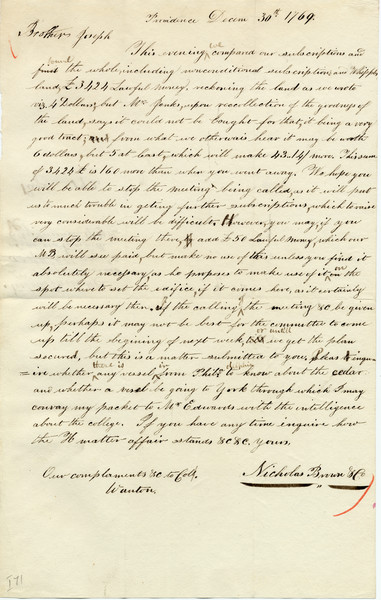 Providence Decem 30th 1769.
Brother Joseph
This evening we compared our subscriptions and
find found the whole, including unconditional subscriptions, and Whipples
land, £3424 Lawful money, reckoning the land as we wrote
viz 4 Dollars, but Mr. Jenks, upon recollection of the goodness of
the land, say it could not be bought for that, it being a very
good tract; and from what we otherwais hear it may be worth
6 dollars, but 5 at least, which will make 43.14/ more. This sum
of 3424 £ is 160 more then when you went away. We hope you
will be able to stop the meeting being called, as it will put
us to much trouble in getting further subscriptions, which to raise
very considerable will be difficult. However, you may, if you
can stop the meeting there, add £50 Lawful money, which our
MB will see paid, but make no use of this unless you find it
absolutely necessary, as he proposes to make use of it on or on
the spot where to set the edifice, if it comes here, as it certainly
will be necessary then. If the calling the meeting &c be given
up, perhaps it may not be best for the committee to come
up till the begining of next week, or untill we get the plan
secured, but this is a matter submitted to you.
ire whether there is any vessel from Philà to know about the cedar
and whether a vessel be going to York through which I may
convay my packet to Mr. Edwards with the intelligence
about the college. If you have any time inquire how
the matter affair stands &c &c. yours,
Nicholas Brown &Co
Our complaments &c to Colo.
Wanton.